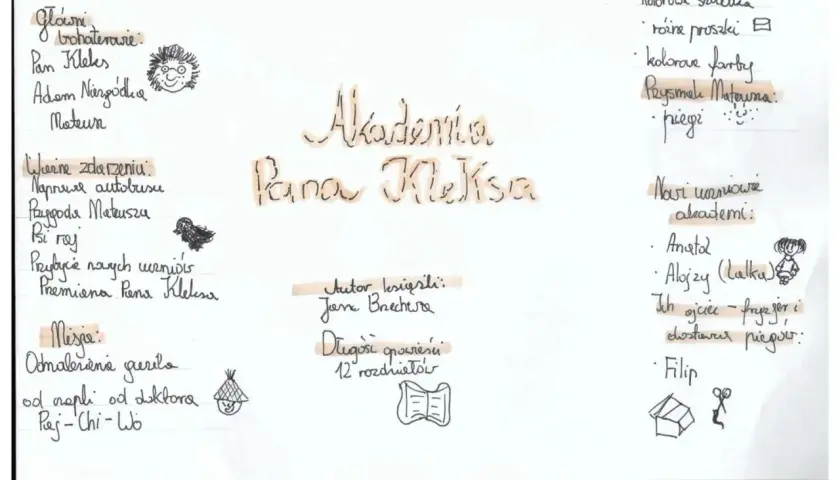 Główni
bohaterowie:
Pan Kleks
Adam Niezgódka
Mateusz
Ważne zdarzenia:
Naprawa autobusu
Przygoda Mateusza
Psi raj
Przybycie nowych uczniów
Przemiana Pana Kleksa
Misja:
Odnalezienie guzika
od czapki od doktora
Paj-Chi-Wo
Akademia
Pana Kleksa
Autor książki:
Jan Brzechwa
Długość opowieści
12 rozdziałów
kolorowe szkiełka
· różne proszki
· kolorowe farby
Przysmak Mateusza:
· piegi
Nowi uczniowie
akademi:
· Anatol
· Alojzy (Lalka)
Ich ojciec - fryzjer i
dostawca piegów:
· Filip